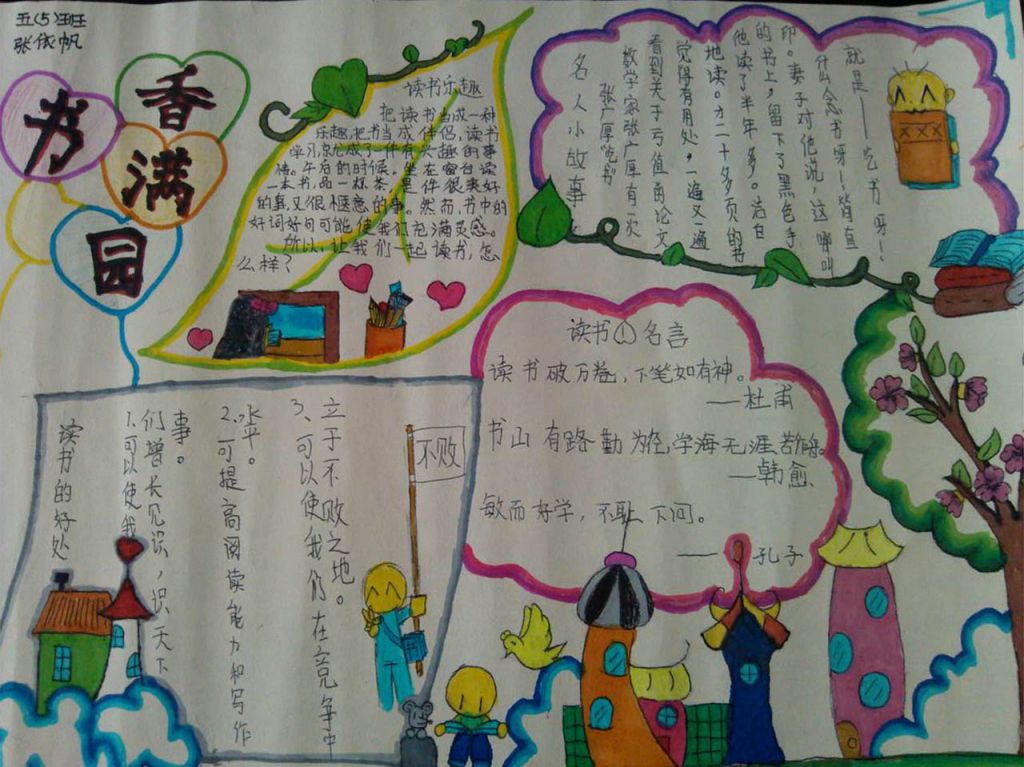 五(5)班
张依帆
书
香
满
园
读书乐趣
把读书当成一种
乐趣,把书当成伴侣,读书
学习,就成了一件有兴趣的事
情。午后的时候。坐在窗台读
一本书,品一杯茶,是件很美好
的又很惬意的事。然而,书中的
好词好句可能使我们充满灵感。
所以,让我们一起读书,怎
么样?
名人小故事
张广厚吃书
数学家张广厚有一次
看到关于亏值的论文
觉得有用处,一遍又一遍
地读。二十多页的书
他读了半年多。洁白
的书上,留下了黑色手
印。妻子对他说,这哪叫
什么念书呀!简直
就是——吃书呀!
读书 名言
读书破万卷,下笔如有神。
——杜甫
书山有路勤为径,学海无涯苦
——韩愈
敏而好学,不耻下问。
——孔子
读书的好处
1.可以使我
们增长见识,识天下
事。
2.可提高阅读能力和写作
水平。
3、可以使我们在竞争中
立于不败之地。
不败